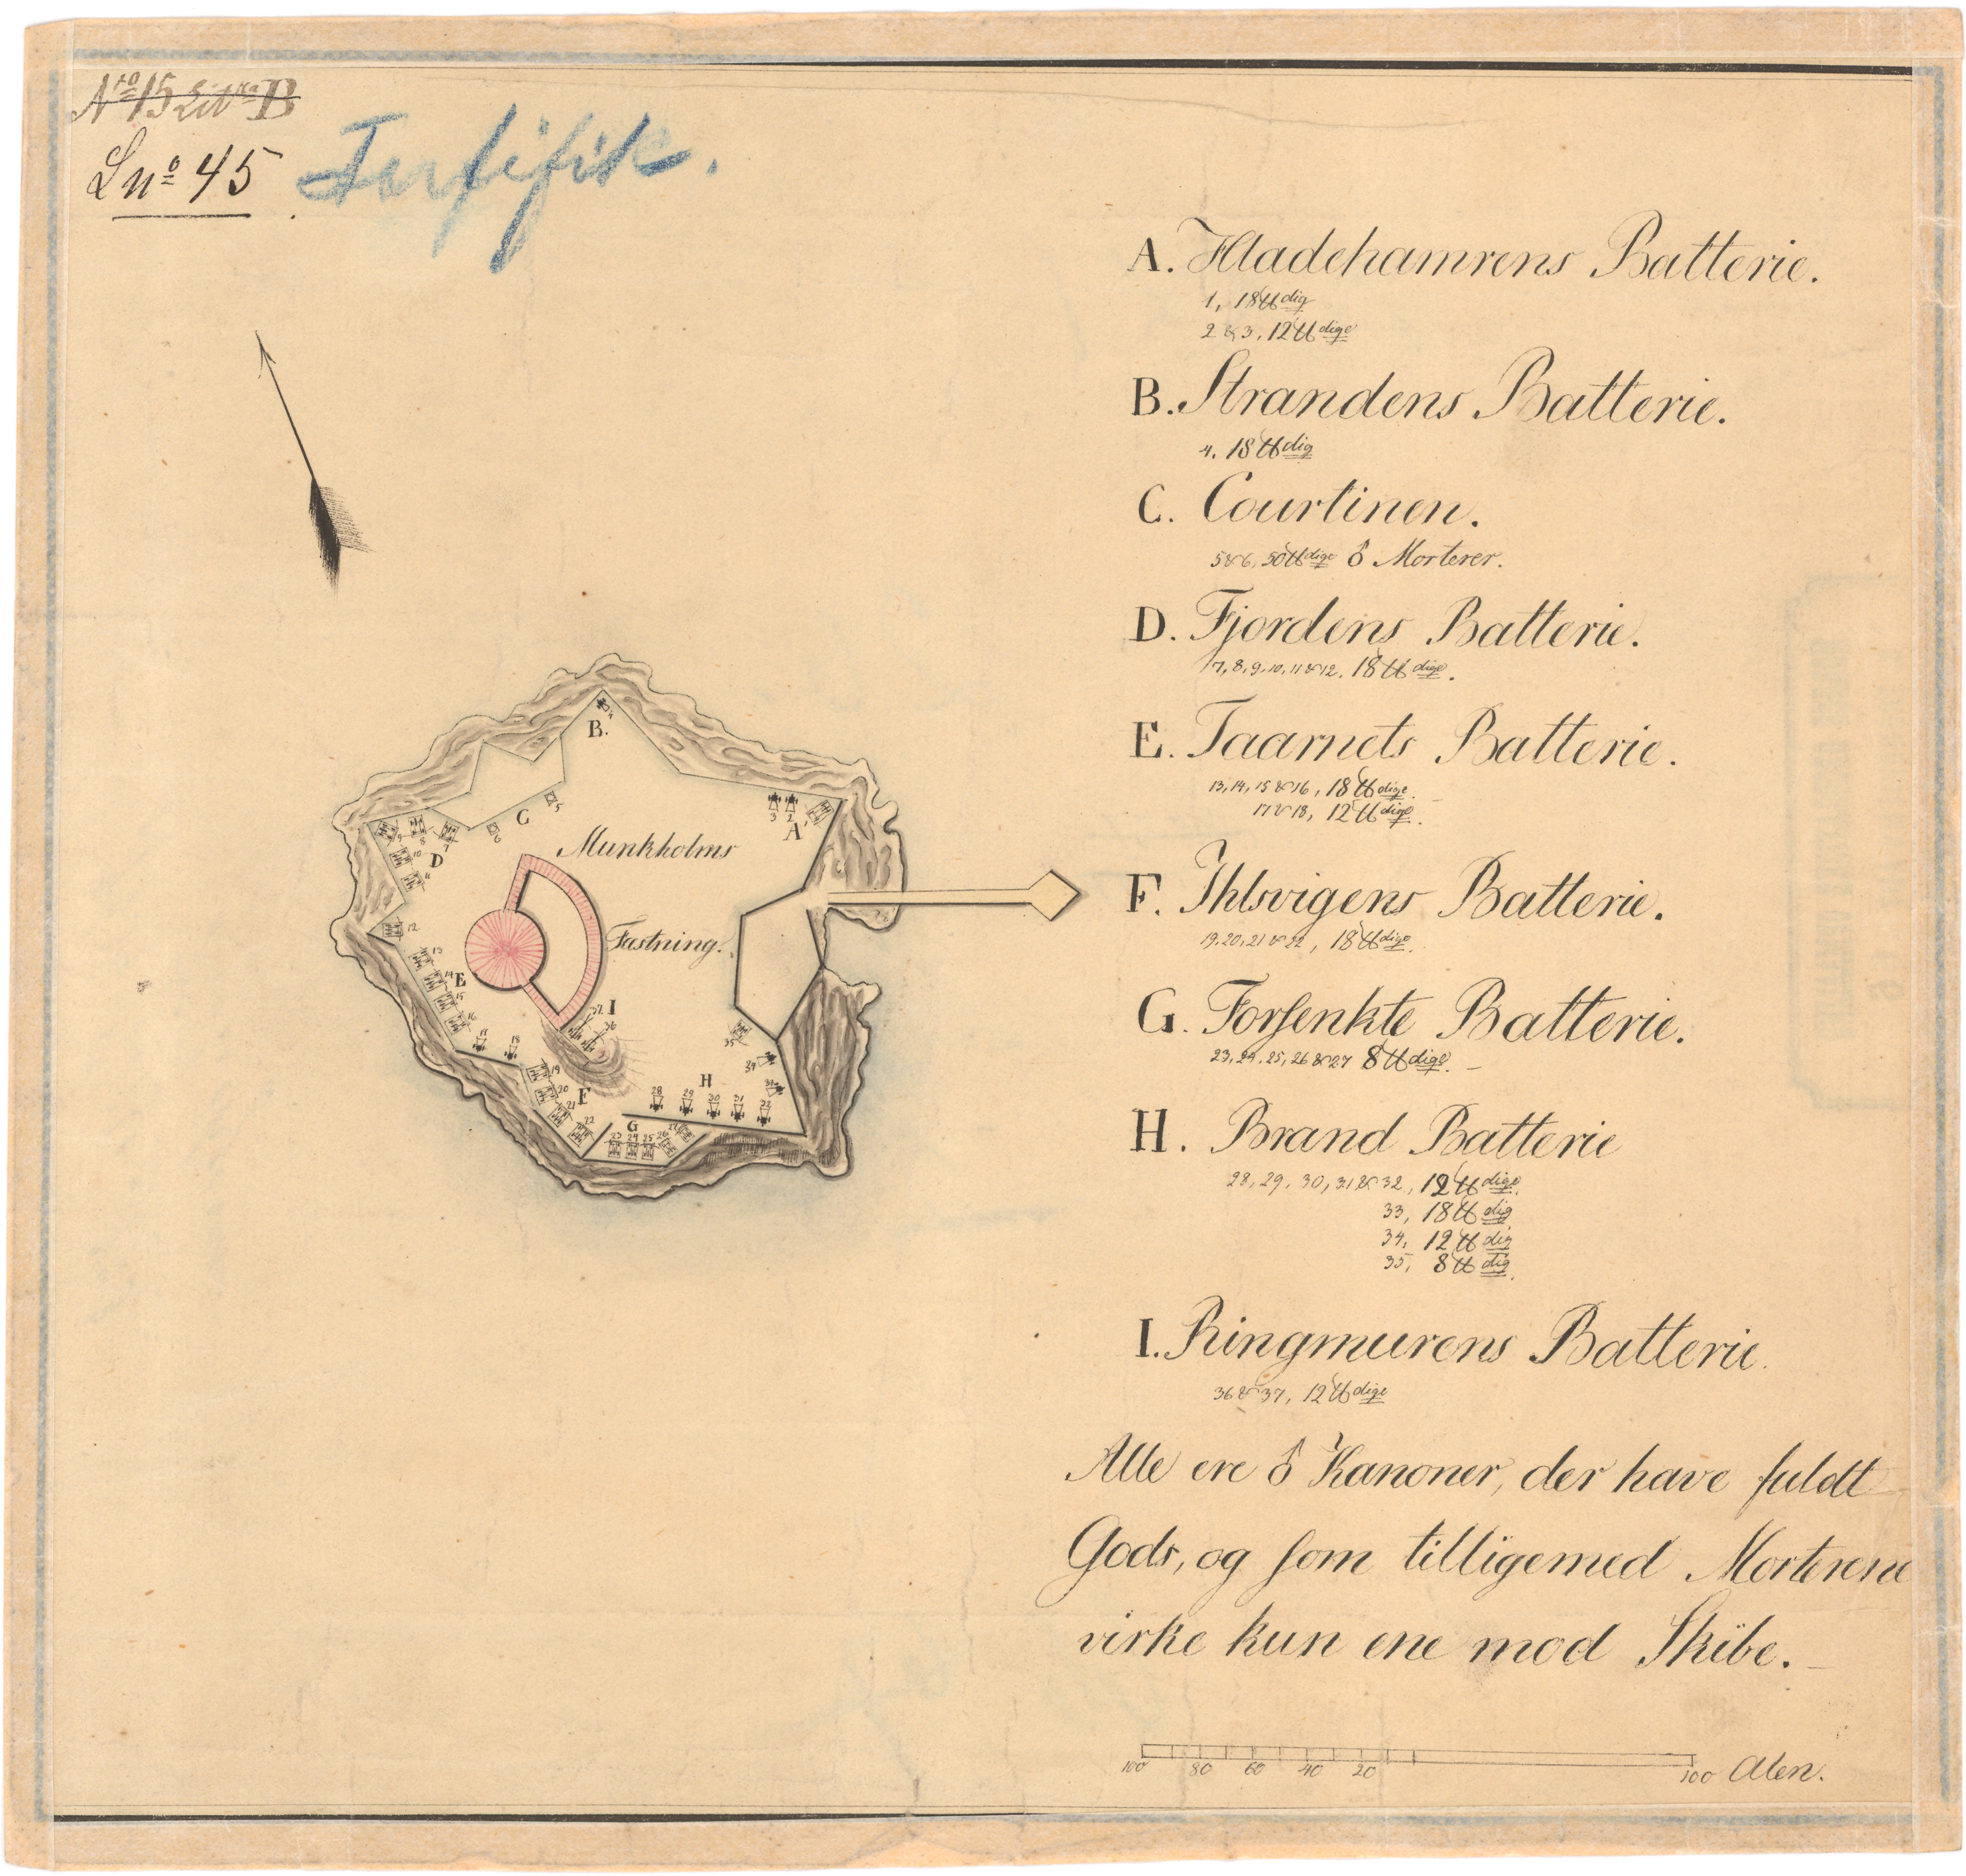 Nto 15 Litra B
Lno 45
A. Hladehamrens Batterie.
1, 18 ℔dig
2 & 3, 12 ℔dige
B. Strandens Batterie.
4. 18 ℔dig
C. Courtinen.
5 & 6, 50 ℔dige ♂ Morterer.
D. Fjordens Batterie.
7, 8, 9, 10, 11 & 12, 18 ℔dige.
E. Taarnets Batterie.
13, 14, 15 & 16, 18 ℔dige.
17 & 18, 12 ℔dige.
F. Ihlsvigens Batterie.
19, 20, 21 & 22, 18 ℔dige.
G. Forſenkte Batterie.
23, 24, 25, 26 & 27 8 ℔dige.
H. Brand Batterie
28, 29, 30, 31 & 32, 12 ℔dige.
33, 18 ℔dig
34, 12 ℔dig
35, 8 ℔dig.
I. Ringmurens Batterie.
36 & 37, 12 ℔dige
Alle ere ♂ Kanoner, der have fuldt
Gods, og ſom tilligemed Morterene
virke kun ene mod Skibe.
100 80 60 40 20 100 Alen.
B.
4
C
5
6
A
1
2
3
Munkholms
Fæstning.
D
7
8
9
10
11
12
E
13
14
15
16
17
18
F
19
20
21
22
G
23
24
25
26
27
H
28
29
30
31
32
33
34
35
I
36
37